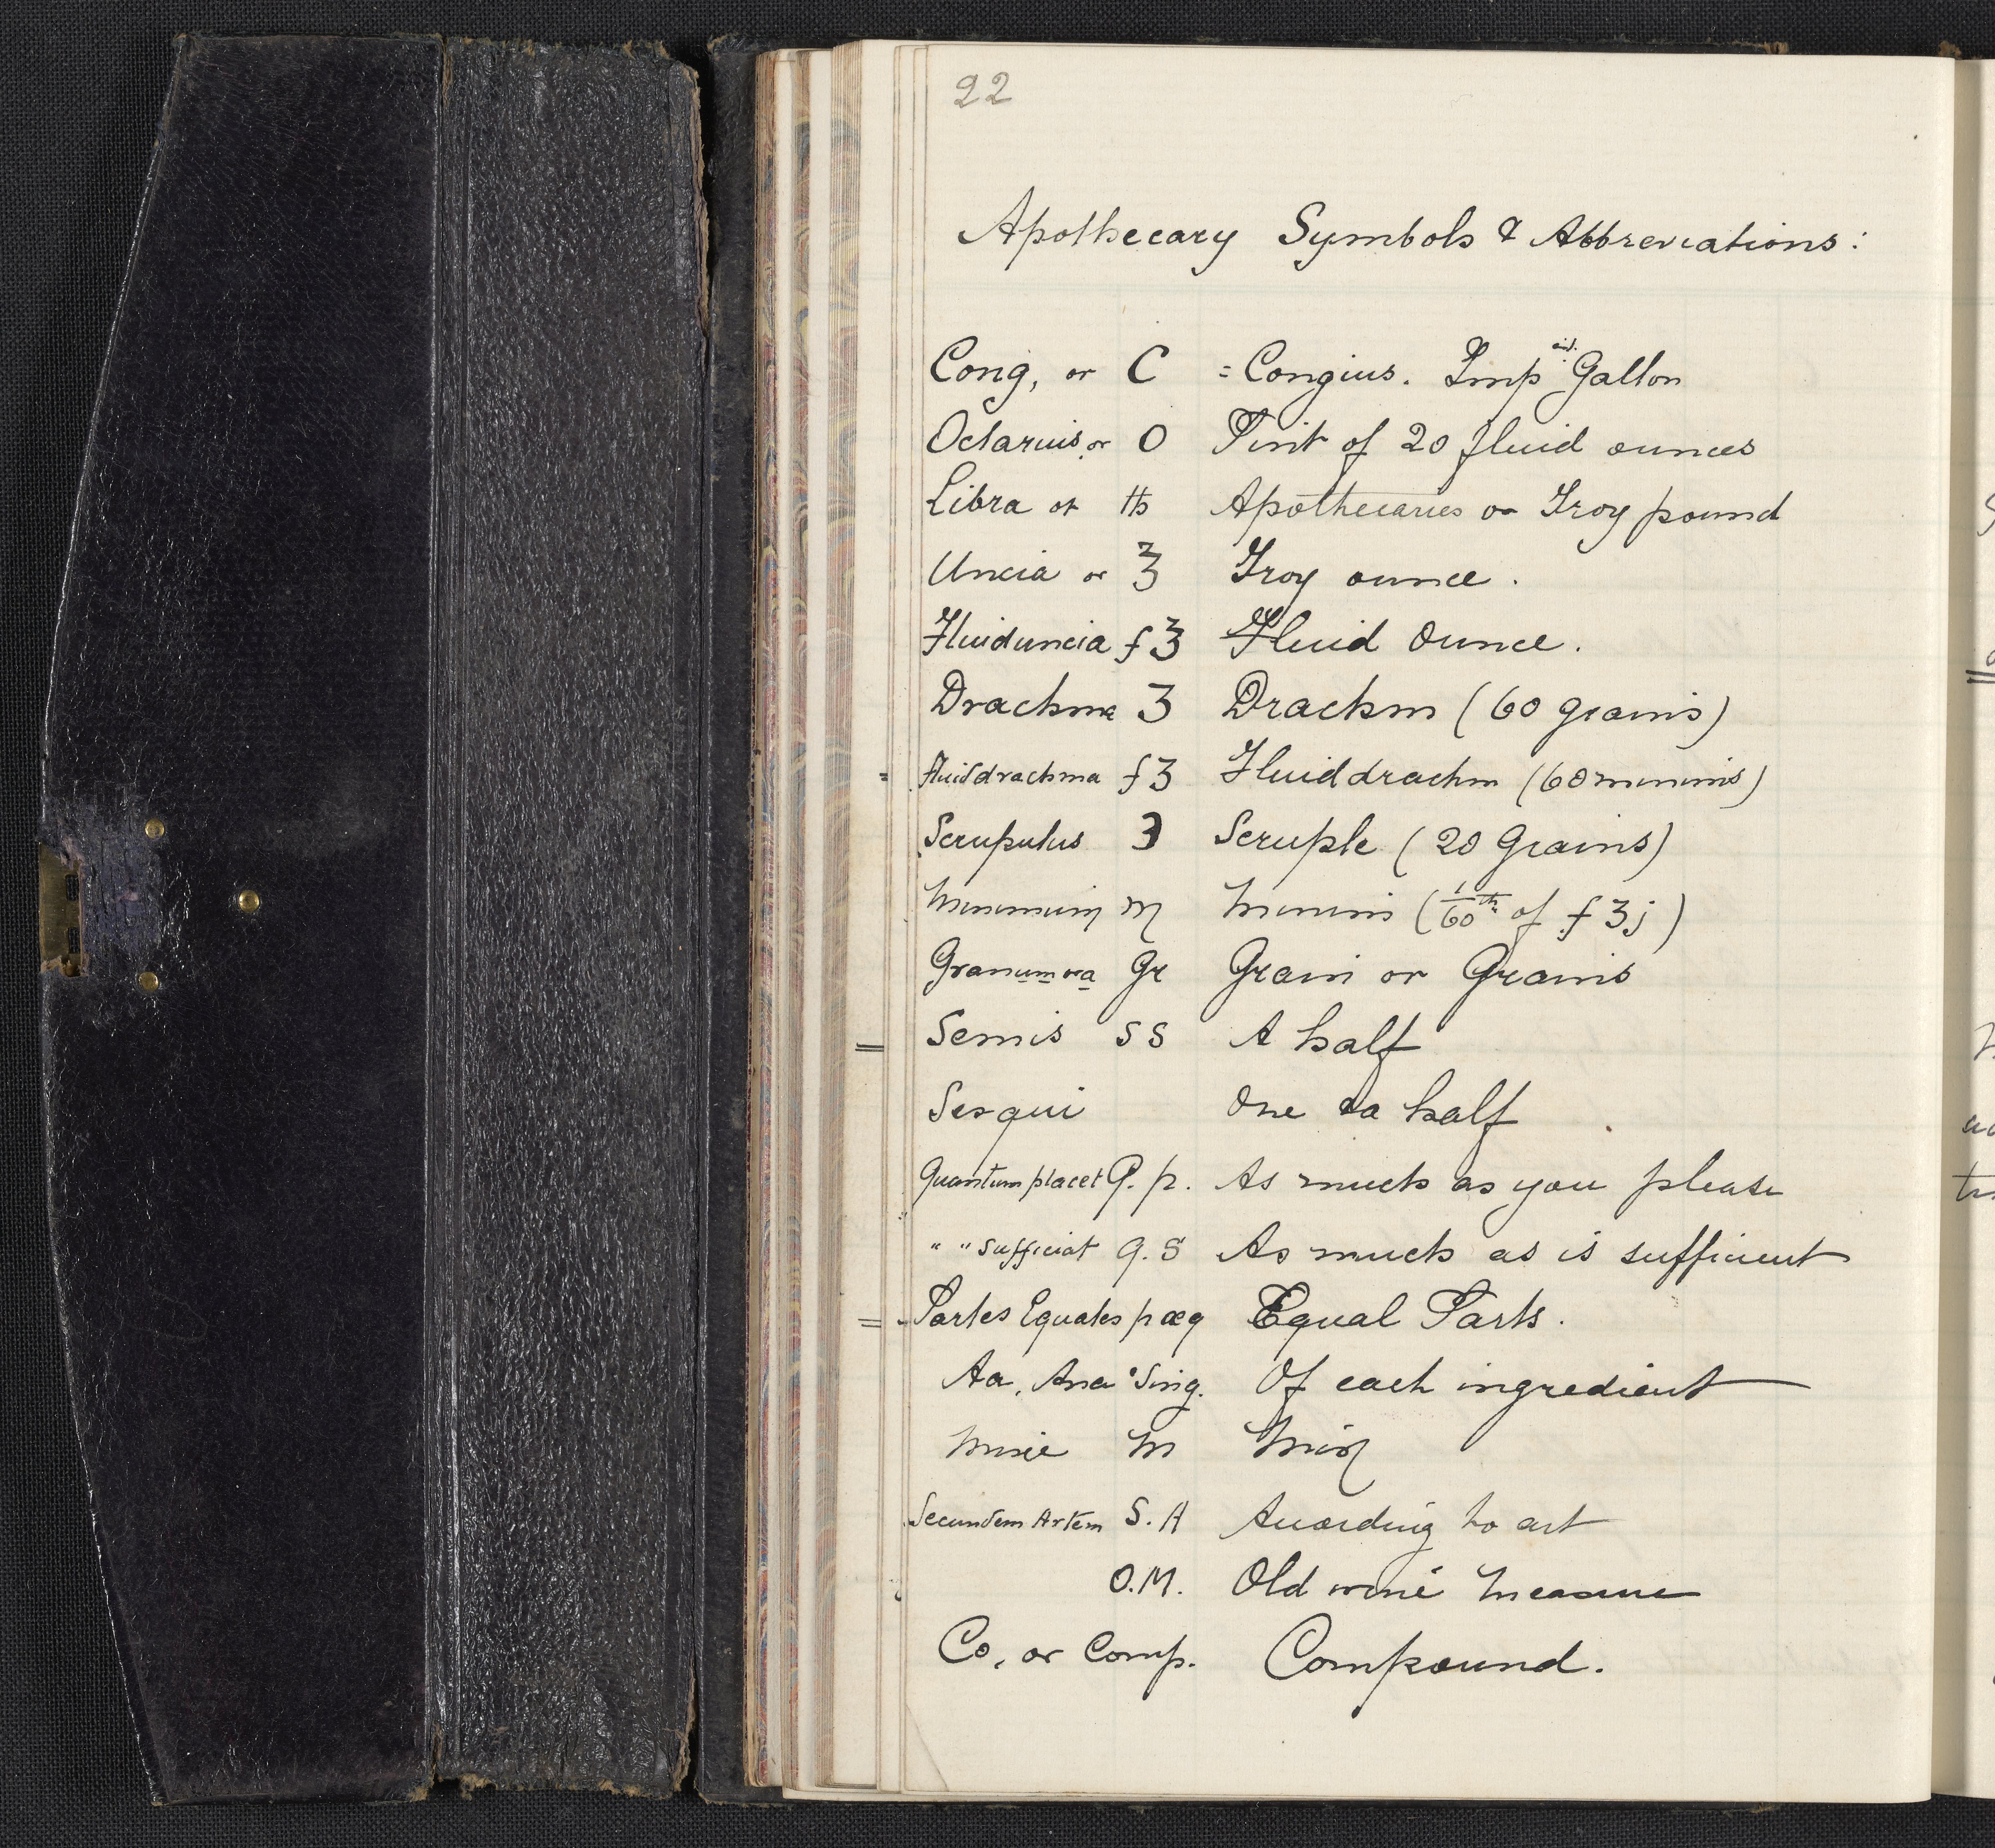 22
Apothecary Symbols & Abbreviations:
Cong, or C = Congius. Imp Gallon
Octarius or O Pint of 20 fluid ounces
Libra or ℔ Apothecaries or Troy pound
Uncia or ℥ Troy ounce.
Fluiduncia f℥ Fluid Ounce.
Drachma ʒ Drachm (60 grains)
Fluiddrachma fʒ Fluiddrachm (60 minims)
Scrupulus ℈ Scruple (20 Grains)
Minimum ♏ Minim (1/60th of fʒj)
Granum or a Gr Grain or Grains
Semis SS A half
Sesqui One & a half
Quantum placet Q. p. As much as you please
" " Sufficiat Q. S As much as is sufficient
Partes Equales p æq Equal Parts.
Aa, Ana Sing. Of each ingredient
Misce M Mix
Secundem Artem S. A According to art
O.M. Old wine Measure
Co, or Comp. Compound.